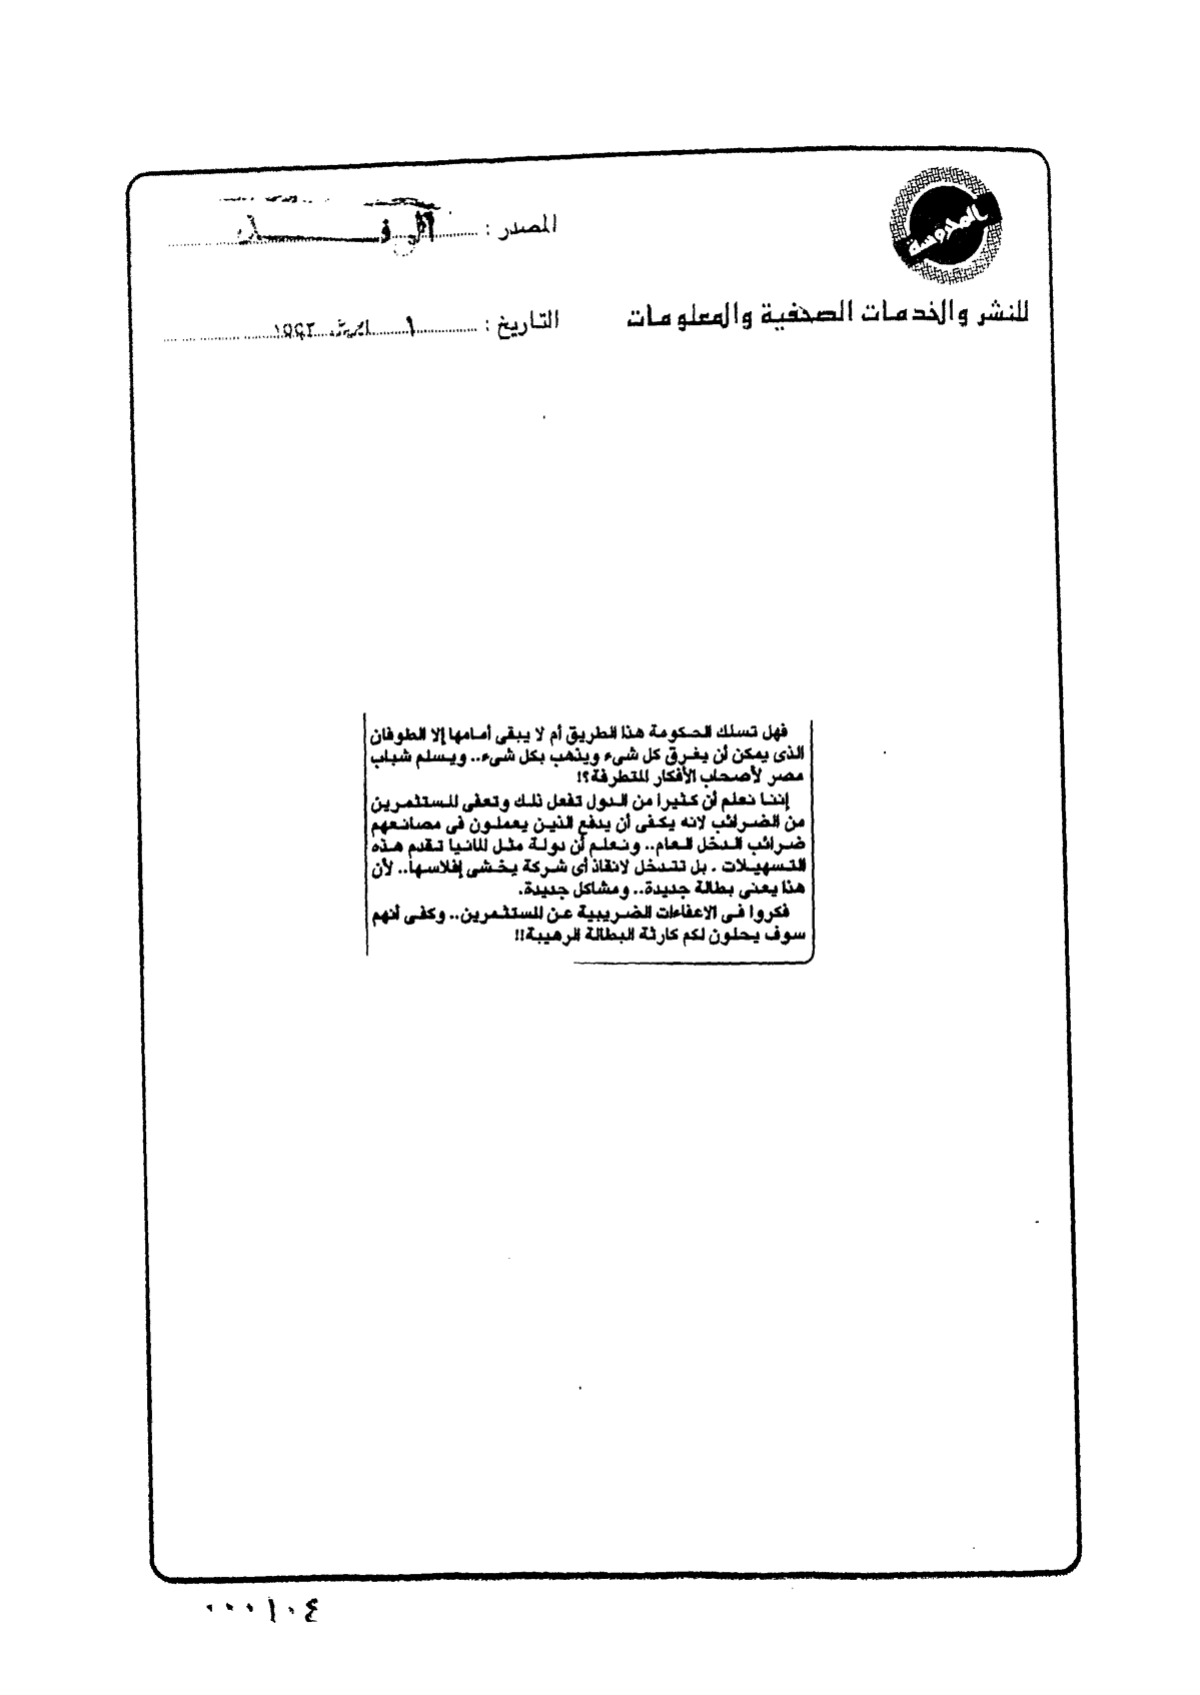 المحروسة
للنشر والخدمات الصحفية والمعلومات
المصدر :
التاريخ : ١ ابريل ١٩٩٣
فهل تسلك الحكومة هذا الطريق أم لا يبقى أمامها إلا الطوفان
الذى يمكن أن يغرق كل شىء ويذهب بكل شىء.. ويسلم شباب
مصر لأصحاب الأفكار المتطرفة؟!
إننا نعلم أن كثيرا من الدول تفعل ذلك وتعفى المستثمرين
من الضرائب لانه يكفى أن يدفع الذين يعملون فى مصانعهم
ضرائب الدخل العام.. ونعلم أن دولة مثل المانيا تقدم هذه
التسهيلات . بل تتدخل لانقاذ أى شركة يخشى إفلاسها.. لأن
هذا يعنى بطالة جديدة.. ومشاكل جديدة.
فكروا فى الاعفاءات الضريبية عن المستثمرين.. وكفى أنهم
سوف يحلون لكم كارثة البطالة الرهيبة!!
٠٠٠١٠٤